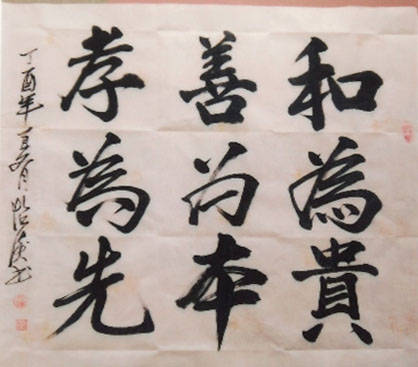 和為貴
善为本
孝為先
丁酉年
書